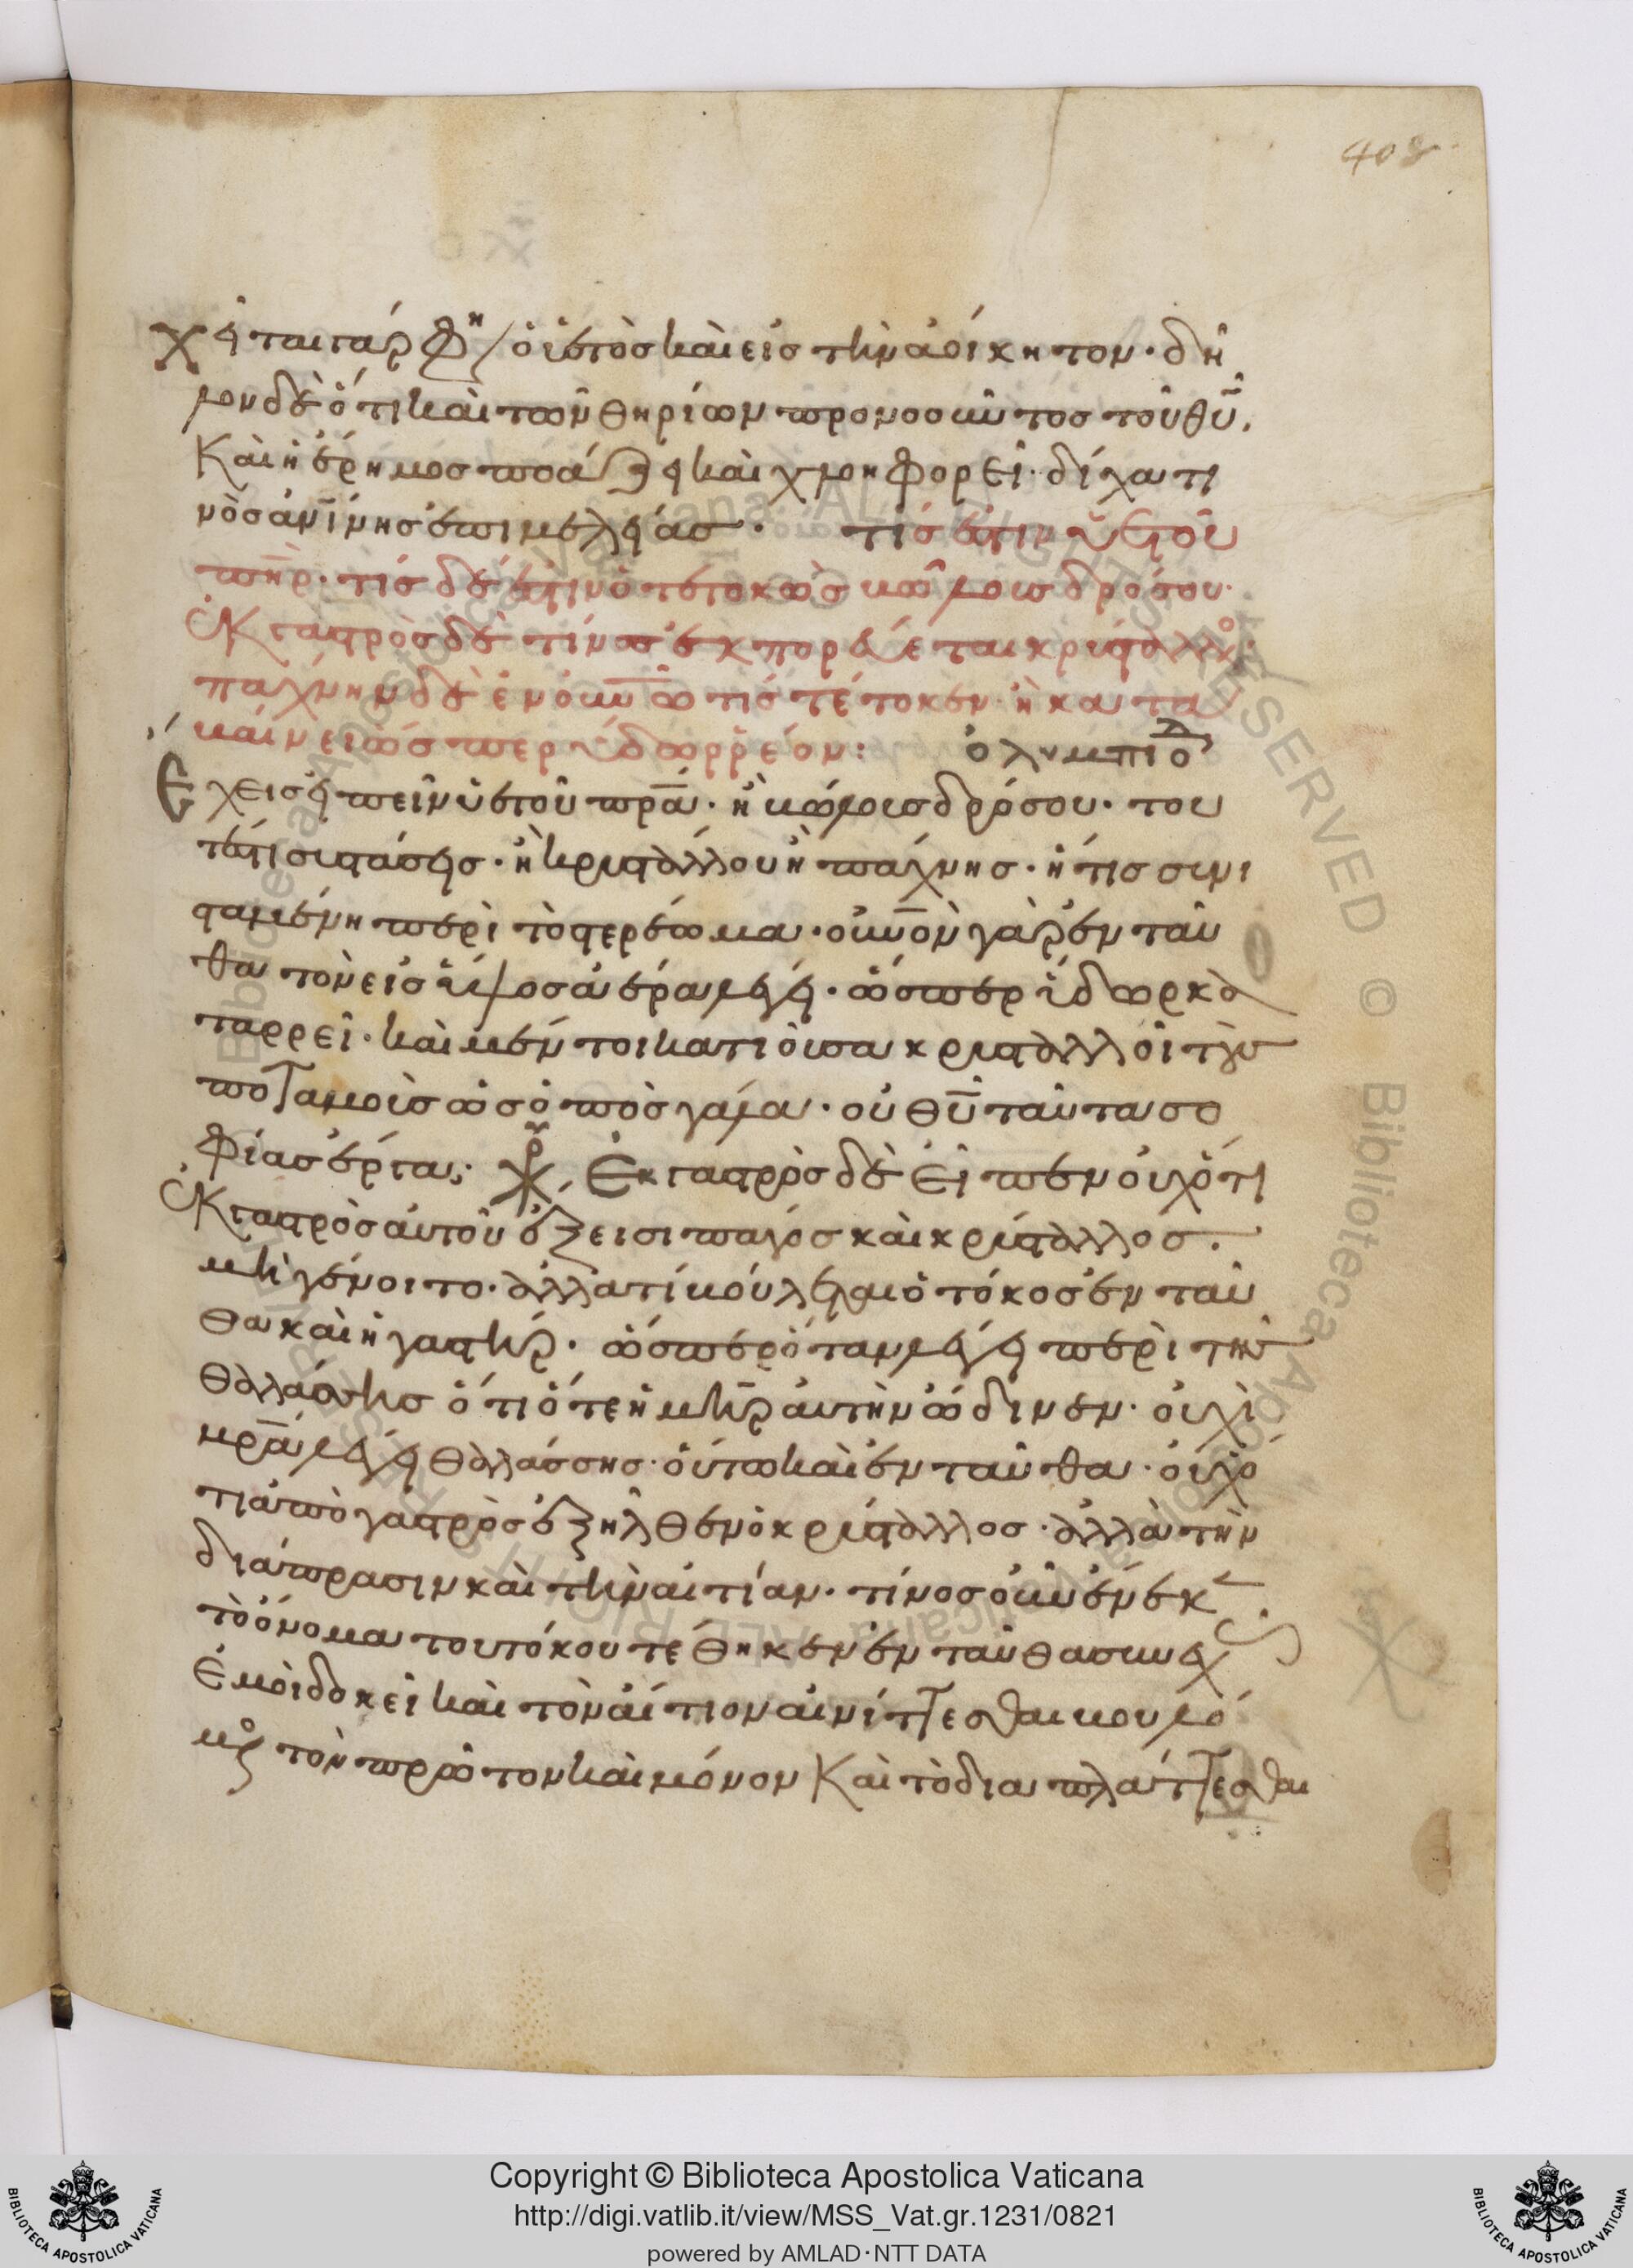 408
χεῖται γάρ φη ὁ ὑετὸς καὶ εἰς τὴν ἀοίκητον · δῆ
λον δὲ ὅτι καὶ τῶν θηρίων προνοοῦντος τοῦ θῦ.
Καὶ ἡ ἔρημος ποάζει καὶ χλοηφορεῖ · δίχα τι
νὸς ἀνίνης ἐπιμελείας · τίς ἐστιν ὑετοῦ
πηρ · τίς δέ ἐστιν ὁ τετοκὼς βώλους δρόσου ·
ἐκ γαστρὸς δὲ τίνος ἐκπορεύεται κρύσταλλος
πάχνην δὲ ἐν οὐνω τίς τέτοκεν · ἢ κατα
βαίνει ὥσπερ ὕδωρ ῥέον :
ὀλυμπιοδ
Ἔχεις εἰπεῖν ὑετοῦ πρα · ἢ βώλους δρόσου · του
τέστι συστάσεις · ἢ κρυστάλλου ἢ πάχνης · ἥτις συνι
σταμένη περὶ τὸ στερέωμα · οὐνον γὰρ ἐνταῦ
θα τὸν εἰς ὕψος ἀέρα λέγει · ὥσπερ ὕδωρ κα
ταρρεῖ · καὶ μέν τοι κατιοῦσα κρυσταλλοῖ τοὺς
ποταμοὺς ὡς ὁπὸς γάλα · οὐ θῦ ταῦτα σο
φίας ἔργα; Ἐκ γαστρὸς δὲ εἶπεν οὐχ ὅτι
ἐκ γαστρὸς αὐτοῦ ἔξεισι πάγος καὶ κρύσταλλος.
μὴ γένοιτο · ἀλλὰ τί βούλεται ὁ τόκος ἐνταῦ
θα καὶ ἡ γαστήρ · ὥσπερ ὅταν λέγει περὶ τῆς
θαλάσσης ὅτι ὅτε ἡ μηρ αὐτὴν ὤδινεν · οὐχὶ
μρα λέγει θαλάσσης · οὕτω καὶ ἐνταῦθα · οὐχ ὅ
τι ἀπὸ γαστρὸς ἐξῆλθεν ὁ κρύσταλλος · ἀλλὰ τὴν
διάπρασιν καὶ τὴν αἰτίαν · τίνος οὖν ἕνεκ
τὸ ὄνομα του τόκου τέθηκεν ἐνταῦθα
Ἐμοὶ δοκεῖ καὶ τὸν αἴτιον αἰνίττεσθαι βουλό
μς τὸν πρῶτον καὶ μόνον Καὶ τὸ διαπλάττεσθαι
Copyright © Biblioteca Apostolica Vaticana
http://digi.vatlib.it/view/MSS_Vat.gr.1231/0821
powered by AMLAD·NTT DATA
BIBLIOTECA APOSTOLICA VATICANA
BIBLIOTECA APOSTOLICA VATICANA